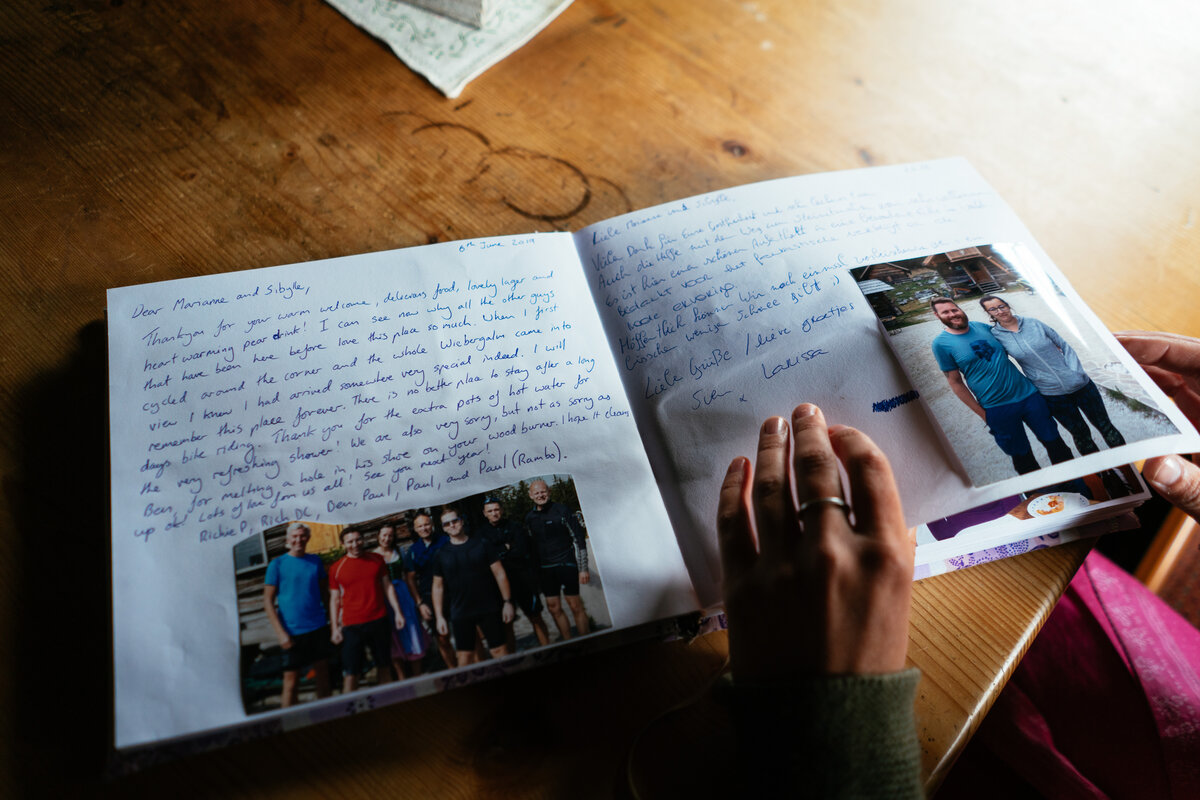 6th June 2019
Dear Marianne and Sibylle,
Thankyou for your warm welcome, delicious food, lovely lager and
heart warming pear drink! I can see now why all the other guys
that have been here before love this place so much. When I first
cycled around the corner and the whole Wiebergalm came into
view I knew I had arrived somewhere very special indeed. I will
remember this place forever. There is no better place to stay after a long
days bike riding. Thank you for the extra pots of hot water for
the very refreshing shower! We are also very sorry, but not as sorry as
Ben, for melting a hole in his shoe on your wood burner. I hope it cleans
up ok! Lots of love from us all! See you next year!
Richie P, Rich DC, Dean, Paul, Paul, and Paul (Rambo).
Liebe Marianne und Sibylle,
Vielen Dank für Eure Gastfreiheit und
Auch die Hilfe mit dem Weg zum
Es ist hier einen schönen Aufenthalt
Bedankt voor het
Hoffentlich können Wir noch einmal
bisschen weniger Schnee gibt ;)
Liebe Grüße / Lieve groetjes
Sven x Larissa